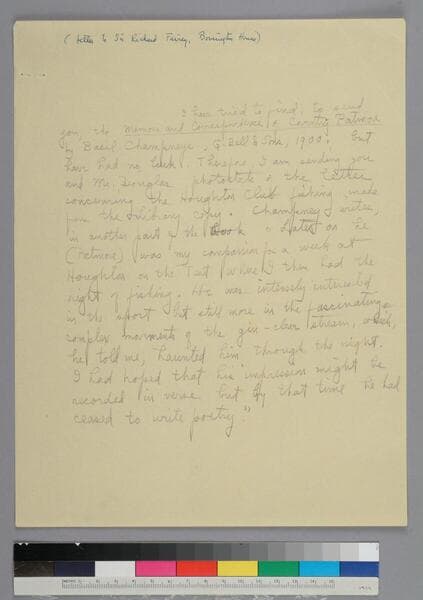 (letter to Sir Richard Fairey, Bossington House)
I have tried to find, to send
you, the Memoirs and Correspondence of Coventry Patmore
by Basil Champneys, G. Bell & Sons, 1900, but
have had no luck. Therefore, I am sending you
and Mr. Douglas photostats of the letters
concerning the Houghton Club fishing made
from the library copy. Champneys writes,
in another part of the book "Later on he
(Patmore) was my companion for a week at
Houghton on the Test where I then had the
right of fishing. He was intensely interested
in the sport but still more in the fascinating &
complex movements of the gin-clear stream, which,
he told me, haunted him through the night.
I had hoped that his impressions might be
recorded in verse but by that time he had
ceased to write poetry."